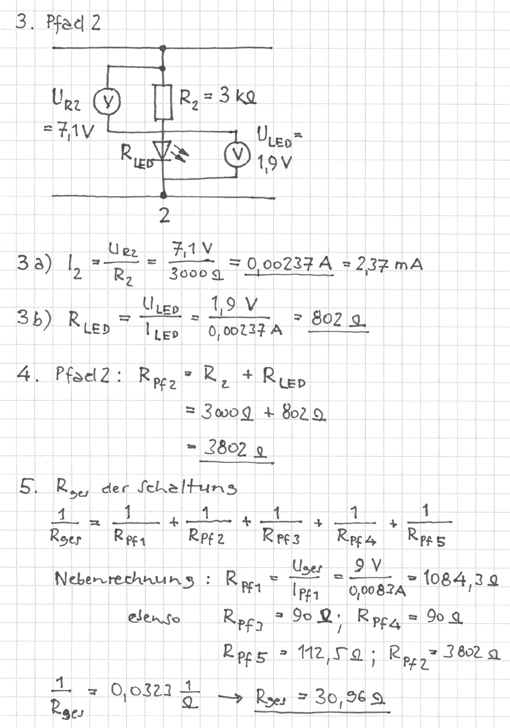 3. Pfad 2
U_R2 = 7,1V
V
R_2 = 3 kΩ
R_LED
V
U_LED = 1,9V
2
3a) I_2 = U_R2 / R_2 = 7,1 V / 3000 Ω = 0,00237 A = 2,37 mA
3b) R_LED = U_LED / I_LED = 1,9 V / 0,00237 A = 802 Ω
4. Pfad 2: R_Pf2 = R_2 + R_LED
= 3000 Ω + 802 Ω
= 3802 Ω
5. R_ges der Schaltung
1 / R_ges = 1 / R_Pf1 + 1 / R_Pf2 + 1 / R_Pf3 + 1 / R_Pf4 + 1 / R_Pf5
Nebenrechnung: R_Pf1 = U_ges / I_Pf1 = 9 V / 0,0083A = 1084,3 Ω
ebenso R_Pf3 = 90 Ω; R_Pf4 = 90 Ω
R_Pf5 = 112,5 Ω; R_Pf2 = 3802 Ω
1 / R_ges = 0,0323 1 / Ω → R_ges = 30,96 Ω